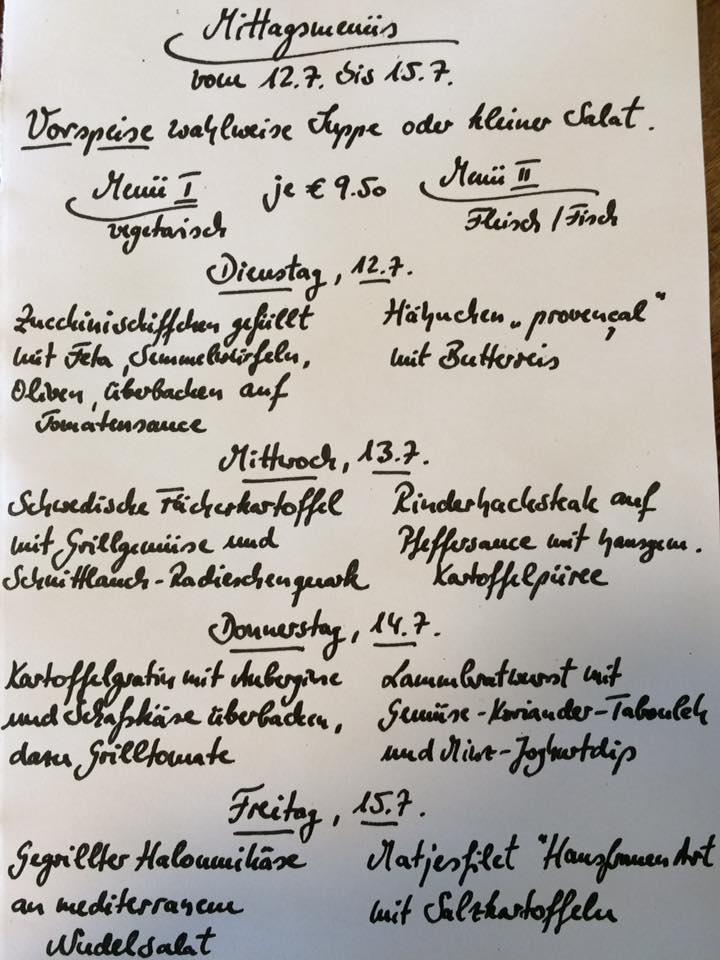 Mittagsmenüs
vom 12.7. bis 15.7.
Vorspeise wahlweise Suppe oder kleiner Salat.
Menü I je € 9.50 Menü II
vegetarisch Fleisch / Fisch
Dienstag, 12.7.
Zucchinischiffchen gefüllt
mit Feta, Semmelwürfeln,
Oliven, überbacken auf
Tomatensauce
Hähnchen „provençal“
mit Butterreis
Mittwoch, 13.7.
Schwedische Fächerkartoffel
mit Grillgemüse und
Schnittlauch-Radieschenquark
Rinderhacksteak auf
Pfeffersauce mit hausgem.
Kartoffelpüree
Donnerstag, 14.7.
Kartoffelgratin mit Aubergine
und Schafskäse überbacken,
dazu Grilltomate
Lammbratwurst mit
Gemüse-Koriander-Tabouleh
und Minz-Joghurtdip
Freitag, 15.7.
Gegrillter Haloumikäse
an mediterranem
Nudelsalat
Matjesfilet "Hausfrauen Art
mit Salzkartoffeln